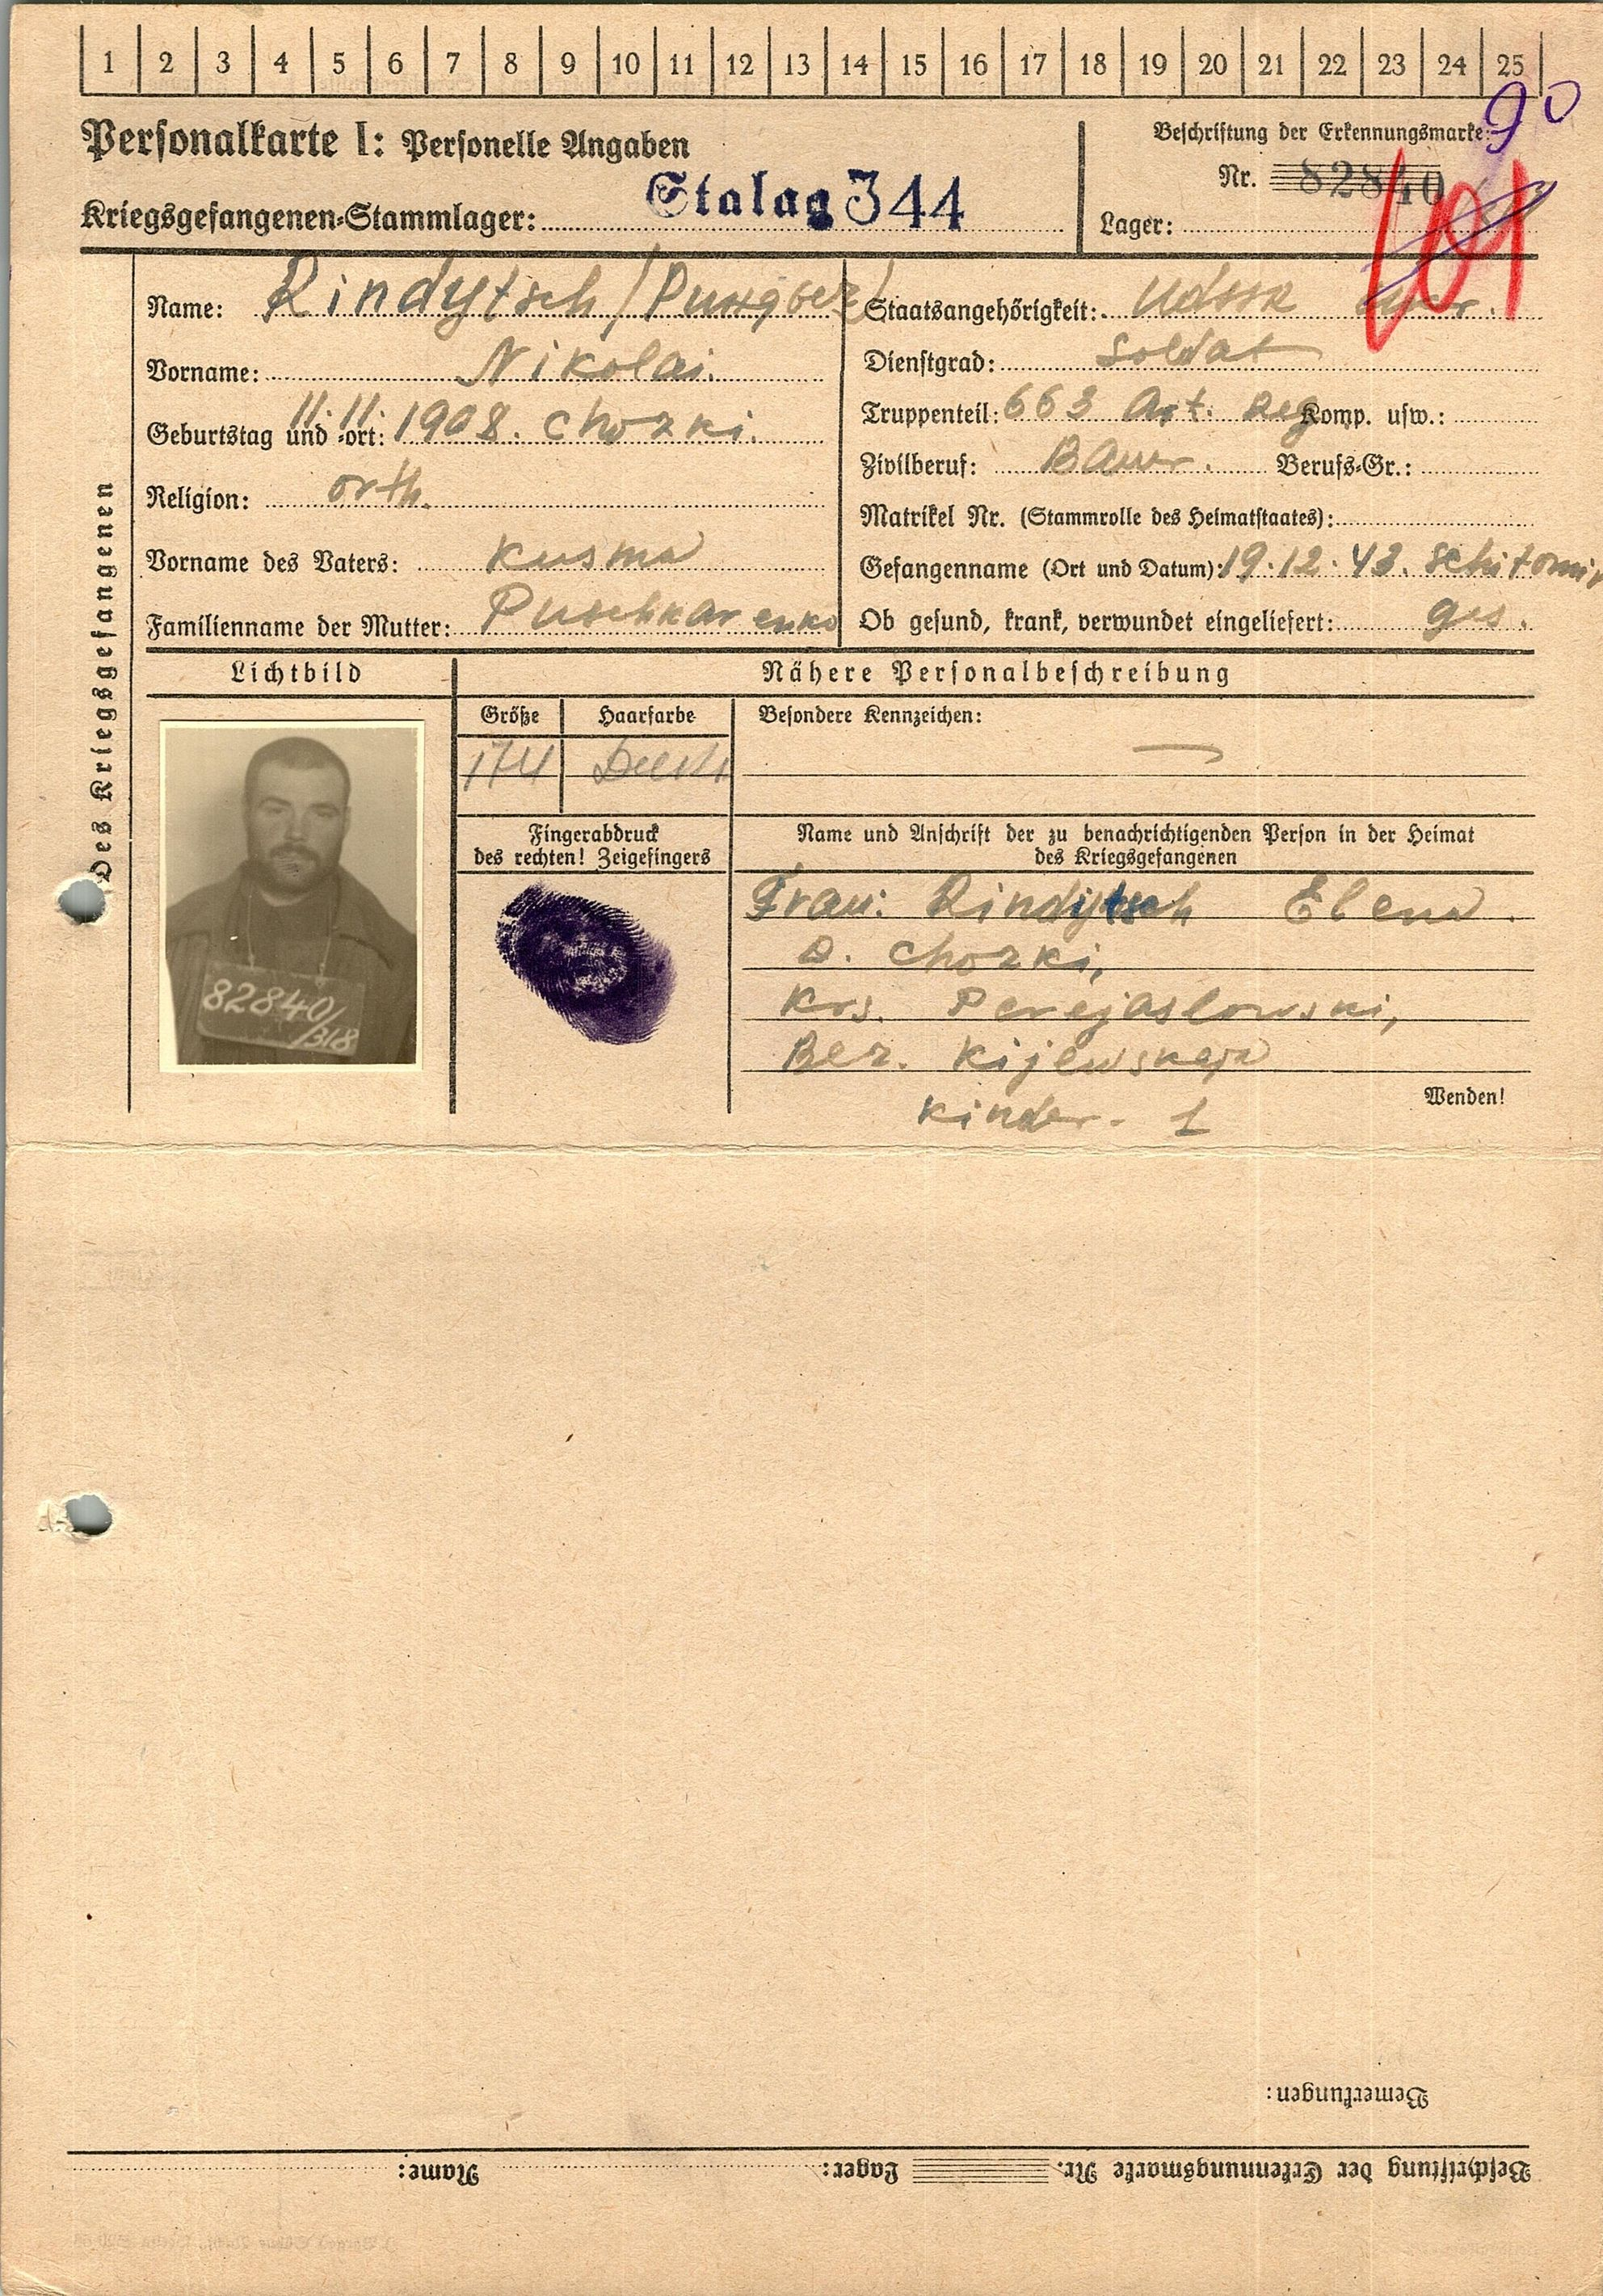 1 2 3 4 5 6 7 8 9 10 11 12 13 14 15 16 17 18 19 20 21 22 23 24 25
90
Personalkarte I: Personelle Angaben
Beschriftung der Erkennungsmarke:
Nr. 82840
Kriegsgefangenen-Stammlager: Stalag 344
Lager:
101
Name: Rindytsch
Staatsangehörigkeit: UdSSR
Vorname: Nikolai.
Dienstgrad: Soldat
Geburtstag und -ort: 11. 11. 1908. Chozki.
Truppenteil: 663 Art. Reg Komp. usw.:
Zivilberuf: Bauer. Berufs-Gr.:
Religion: orth.
Matrikel Nr. (Stammrolle des Heimatstaates):
Vorname des Vaters: Kusma
Gefangenname (Ort und Datum): 19.12.43. Schitomir
Familienname der Mutter: Puschkarenko
Ob gesund, krank, verwundet eingeliefert: ges.
Des Kriegsgefangenen
Lichtbild
Nähere Personalbeschreibung
Größe
Haarfarbe
Besondere Kennzeichen:
174
—
Fingerabdruck
des rechten! Zeigefingers
Name und Anschrift der zu benachrichtigenden Person in der Heimat
des Kriegsgefangenen
Frau: Rindytsch Elena.
D. Chozki,
Krs. Perejaslowski,
Bez. Kijewskaja
Kinder - 1
Wenden!
82840/
318
Bemerkungen:
Beschriftung der Erkennungsmarke Nr. Lager: Name: